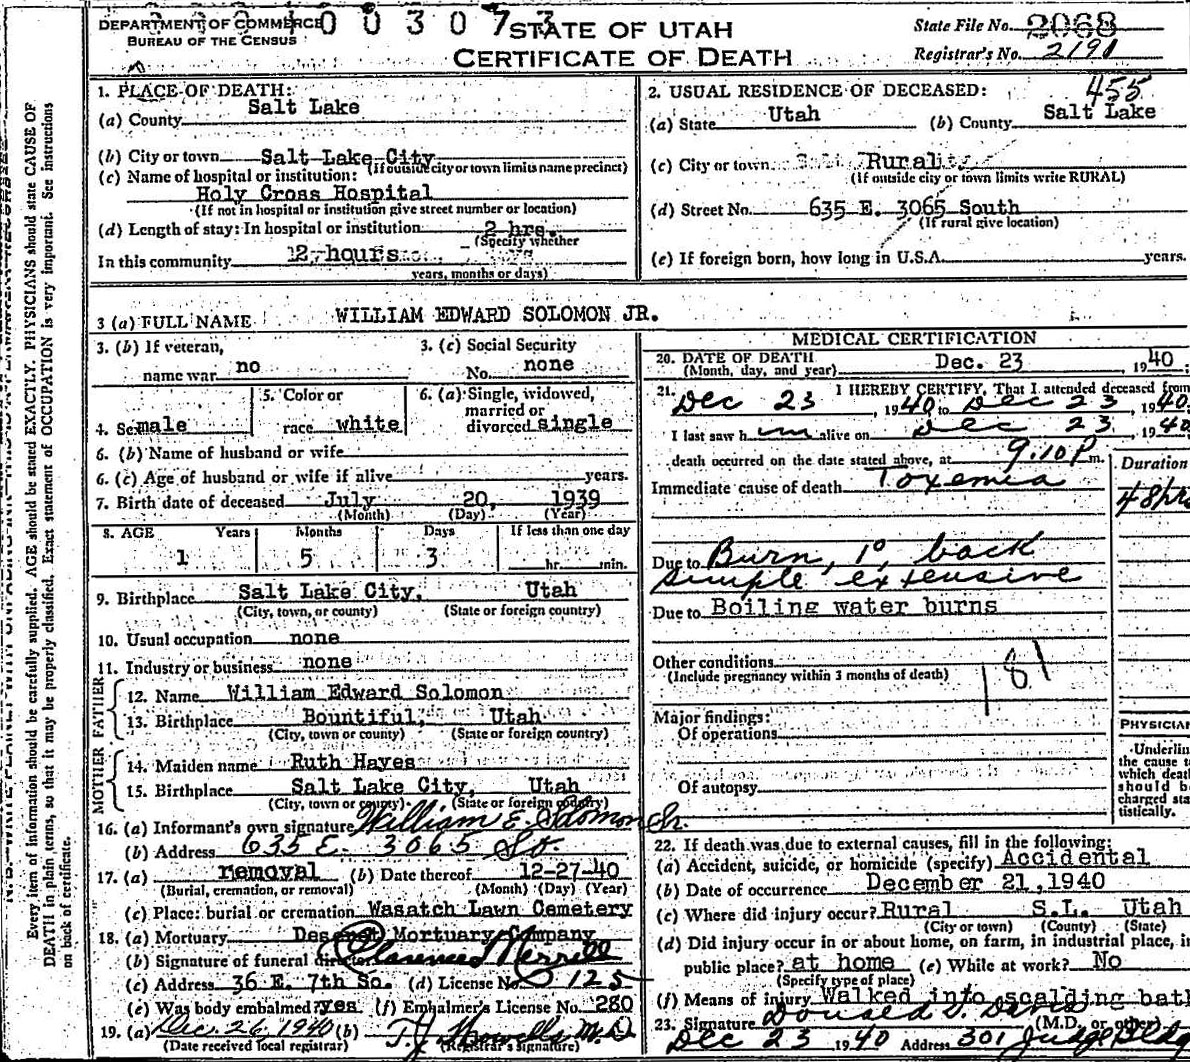 DEPARTMENT OF COMMERCE
BUREAU OF THE CENSUS
0 0 3 0 7 3
STATE OF UTAH
CERTIFICATE OF DEATH
State File No. 2068
Registrar's No. 2191
1. PLACE OF DEATH:
(a) County Salt Lake
(b) City or town Salt Lake City
(If outside city or town limits name precinct)
(c) Name of hospital or institution:
Holy Cross Hospital
(If not in hospital or institution give street number or location)
(d) Length of stay: In hospital or institution 2 hrs.
(Specify whether
In this community 12 hours
years, months or days)
455
2. USUAL RESIDENCE OF DECEASED:
(a) State Utah (b) County Salt Lake
(c) City or town Rural
(If outside city or town limits write RURAL)
(d) Street No. 635 E. 3065 South
(If rural give location)
(e) If foreign born, how long in U.S.A. years.
3 (a) FULL NAME WILLIAM EDWARD SOLOMON JR.
3. (b) If veteran, name war no
3. (c) Social Security No. none
4. Sex male
5. Color or race white
6. (a) Single, widowed, married or divorced single
6. (b) Name of husband or wife
6. (c) Age of husband or wife if alive years.
7. Birth date of deceased July 20, 1939
(Month) (Day) (Year)
8. AGE Years Months Days If less than one day
1 5 3 hr. min.
9. Birthplace Salt Lake City, Utah
(City, town, or county) (State or foreign country)
10. Usual occupation none
11. Industry or business none
FATHER
12. Name William Edward Solomon
13. Birthplace Bountiful, Utah
(City, town or county) (State or foreign country)
MOTHER
14. Maiden name Ruth Hayes
15. Birthplace Salt Lake City, Utah
(City, town or county) (State or foreign country)
16. (a) Informant's own signature William E. Solomon Sr.
(b) Address 635 E. 3065 So.
17. (a) removal (b) Date thereof 12-27-40
(Burial, cremation, or removal) (Month) (Day) (Year)
(c) Place: burial or cremation Wasatch Lawn Cemetery
18. (a) Mortuary Deseret Mortuary Company
(b) Signature of funeral director Clarence Merrill
(c) Address 36 E. 7th So. (d) License No. 125
(e) Was body embalmed? yes (f) Embalmer's License No. 280
19. (a) Dec. 26, 1940 (b) T. J. Howells M.D.
(Date received local registrar) (Registrar's signature)
MEDICAL CERTIFICATION
20. DATE OF DEATH Dec. 23 1940;
(Month, day, and year)
21. I HEREBY CERTIFY, That I attended deceased from
Dec 23, 1940 to Dec 23, 1940
I last saw him alive on Dec 23, 1940
death occurred on the date stated above, at 9:10 P m.
Duration
Immediate cause of death Toxemia
48 hrs
Due to Burn, 1° back
simple extensive
Due to Boiling water burns
Other conditions
(Include pregnancy within 3 months of death)
181
Major findings:
Of operations
Of autopsy
PHYSICIAN
Underlin
the cause t
which deat
should b
charged sta
tistically.
22. If death was due to external causes, fill in the following:
(a) Accident, suicide, or homicide (specify) Accidental
(b) Date of occurrence December 21, 1940
(c) Where did injury occur? Rural S.L. Utah
(City or town) (County) (State)
(d) Did injury occur in or about home, on farm, in industrial place, in
public place? at home (e) While at work? No
(Specify type of place)
(f) Means of injury Walked into scalding bath
23. Signature Donald D. Davis (M.D. or other)
Dec 23 1940 Address 301 Judge Bldg
Every item of information should be carefully supplied. AGE should be stated EXACTLY. PHYSICIANS should state CAUSE OF
DEATH in plain terms, so that it may be properly classified. Exact statement of OCCUPATION is very important. See instructions
on back of certificate.